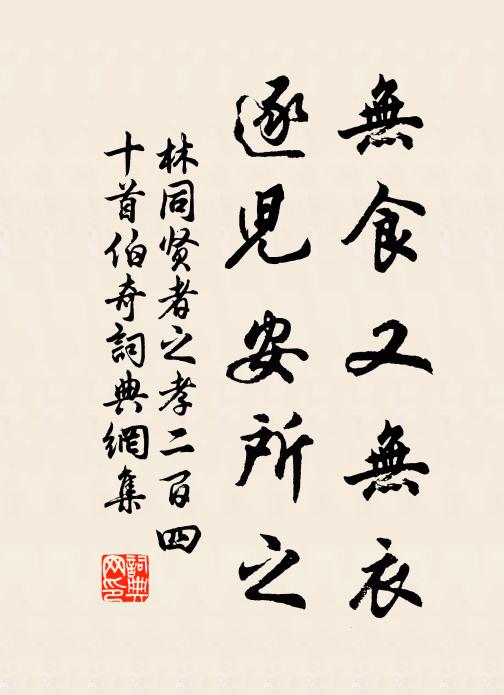 無食又無衣
逐児安所之
林同贤者之孝二百四
十首伯奇詞典網集
詞典網印